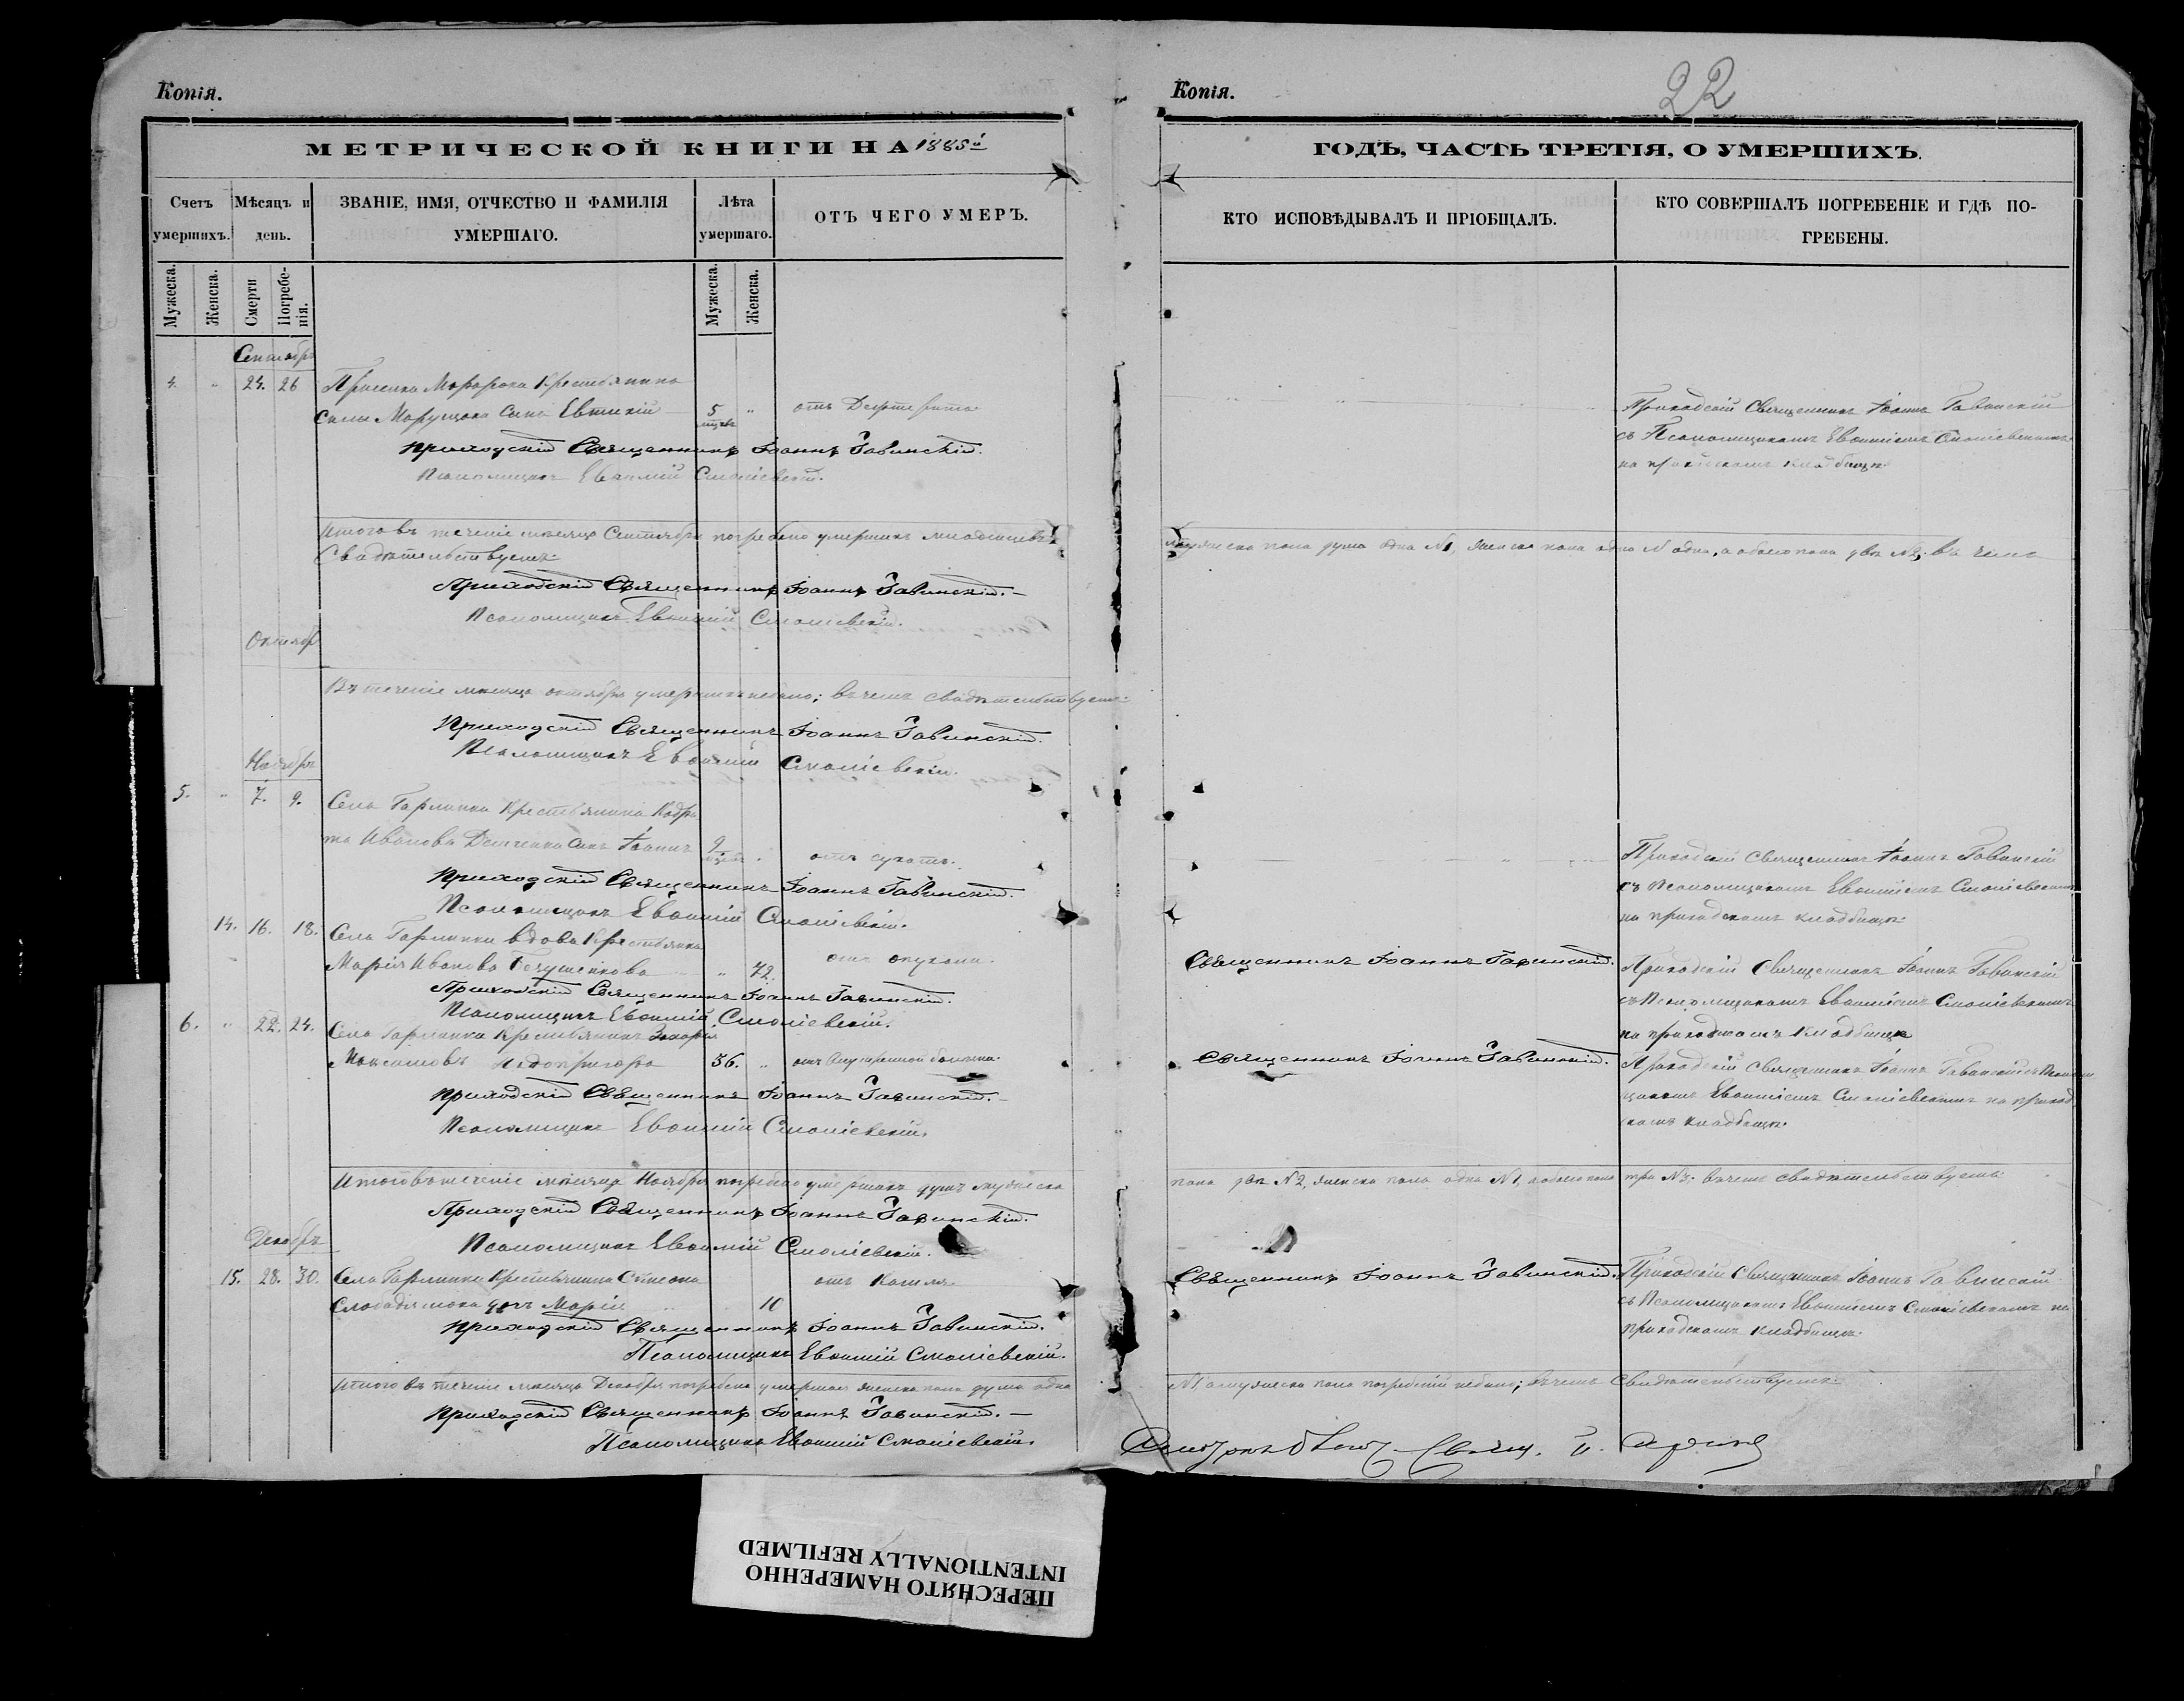 Копія.
МЕТРИЧЕСКОЙ КНИГИ НА 1885й
Счетъ умершихъ.
Мѣсяцъ и день.
ЗВАНІЕ, ИМЯ, ОТЧЕСТВО И ФАМИЛІЯ УМЕРШАГО.
Лѣта умершаго.
ОТЪ ЧЕГО УМЕРЪ.
Мужеска.
Женска.
Смерти
Погребенія.
Мужеска.
Женска.
Сентябрь
4. 24. 26
Крестьянина
сынъ Евтихій 5
Приходскій Священникъ Іоаннъ Гавинскій.
Псаломщикъ Евѳимій Смоліевскій.
Итого въ теченіе мѣсяца Сентября погребено умершихъ младенцевъ
Свидѣтельствуемъ:
Приходскій Священникъ Іоаннъ Гавинскій.
Псаломщикъ Евѳимій Смоліевскій.
Октябрь
Въ теченіе мѣсяца октября умершихъ небыло; въ чемъ свидѣтельствуемъ:
Приходскій Священникъ Іоаннъ Гавинскій.
Псаломщикъ Евѳимій Смоліевскій.
Ноябрь
5. 7. 9. Села Гарлинки Крестьянина Кодра
та Иванова сынъ Іоаннъ 9 отъ сухотъ.
Приходскій Священникъ Іоаннъ Гавинскій.
Псаломщикъ Евѳимій Смоліевскій.
14. 16. 18. Села Гарлинки вдова Крестьянка
Марія Иванова 72. отъ опухоли.
Приходскій Священникъ Іоаннъ Гавинскій.
Псаломщикъ Евѳимій Смоліевскій.
6. 22. 24. Села Гарлинки Крестьянинъ Захарія
Максимовъ 56. отъ внутренней болѣзни.
Приходскій Священникъ Іоаннъ Гавинскій.
Псаломщикъ Евѳимій Смоліевскій.
Итого въ теченіе мѣсяца Ноября погребено умершихъ душъ мужеска
Приходскій Священникъ Іоаннъ Гавинскій.
Псаломщикъ Евѳимій Смоліевскій.
Декабрь
15. 28. 30. Села Гарлинки Крестьянина Сѵмеона отъ Кашля.
дочь Марія 10
Приходскій Священникъ Іоаннъ Гавинскій.
Псаломщикъ Евѳимій Смоліевскій.
Итого въ теченіе мѣсяца Декабря погребено умершихъ женска пола душа одна
Приходскій Священникъ Іоаннъ Гавинскій.
Псаломщикъ Евѳимій Смоліевскій.
Копія.
22
ГОДЪ, ЧАСТЬ ТРЕТІЯ, О УМЕРШИХЪ.
КТО ИСПОВѢДЫВАЛЪ И ПРІОБЩАЛЪ.
КТО СОВЕРШАЛЪ ПОГРЕБЕНІЕ И ГДѢ ПОГРЕБЕНЫ.
Приходскій Священникъ Іоаннъ Гавинскій
съ Псаломщикомъ Евѳиміемъ Смоліевскимъ
на приходскомъ кладбищѣ.
мужеска пола душа одна №1, женска пола одна, а обоего пола двѣ №2; въ чемъ
Приходскій Священникъ Іоаннъ Гавинскій
съ Псаломщикомъ Евѳиміемъ Смоліевскимъ
на приходскомъ кладбищѣ.
Священникъ Іоаннъ Гавинскій.
Приходскій Священникъ Іоаннъ Гавинскій
съ Псаломщикомъ Евѳиміемъ Смоліевскимъ
на приходскомъ кладбищѣ
Священникъ Іоаннъ Гавинскій.
Приходскій Священникъ Іоаннъ Гавинскій съ Псаломщикомъ Евѳиміемъ Смоліевскимъ на приход
скомъ кладбищѣ.
пола двѣ №2, женска пола одна №1, а обоего пола три №3. въ чемъ свидѣтельствуемъ:
Священникъ Іоаннъ Гавинскій.
Приходскій Священникъ Іоаннъ Гавинскій
съ Псаломщикомъ Евѳиміемъ Смоліевскимъ на
приходскомъ кладбищѣ.
№1, а мужеска пола погребеній небыло; въ чемъ Свидѣтельствуемъ:
ПЕРЕСНЯТО НАМЕРЕННО
INTENTIONALLY REFILMED